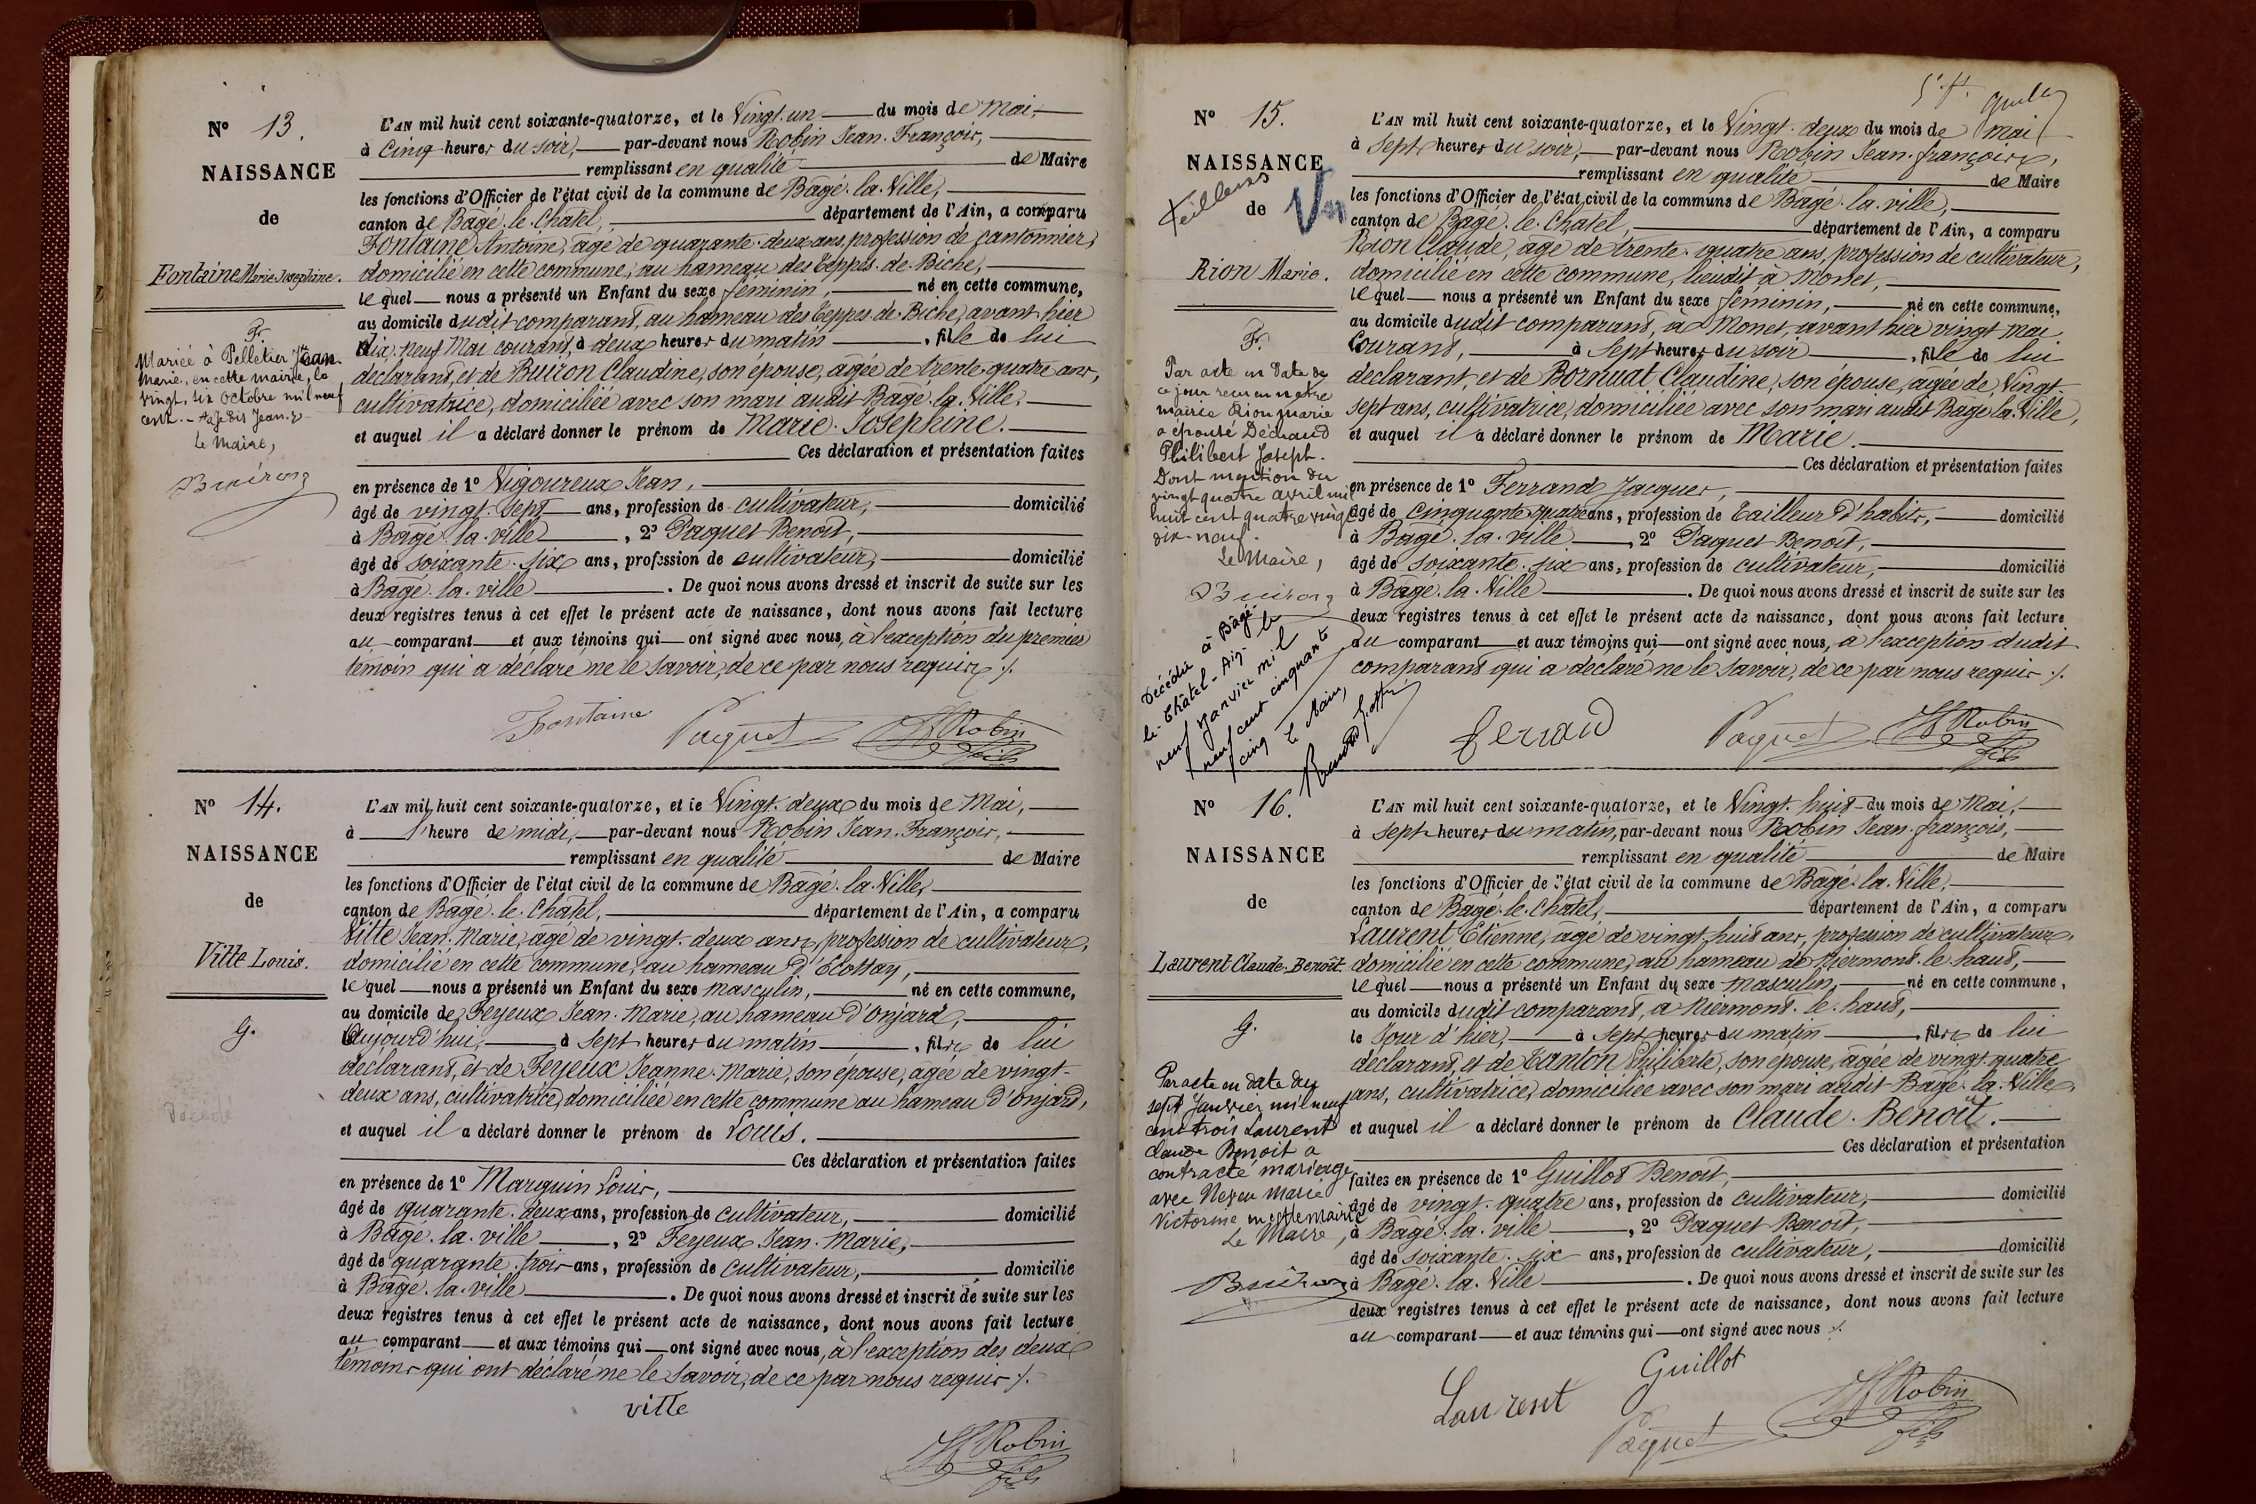 N° 13.
NAISSANCE
de
Fontaine Marie Joséphine.
F.
Mariée à Pelletier Jean
Marie, en cette mairie, le
vingt six octobre mil neuf
cent.
Le Maire,
Buiron
L'AN mil huit cent soixante-quatorze, et le Vingt-un du mois de Mai,
à Cinq heures du soir, par-devant nous Robin Jean-François,
remplissant en qualité de Maire
les fonctions d'Officier de l'état civil de la commune de Bagé-la-Ville,
canton de Bagé-le-Chatel, département de l'Ain, a comparu
Fontaine Antoine, âgé de quarante-deux ans, profession de cantonnier,
domicilié en cette commune, au hameau des Teppes-de-Biche,
lequel nous a présenté un Enfant du sexe féminin, né en cette commune,
au domicile dudit comparant, au hameau des Teppes-de-Biche, avant hier
dix-neuf Mai courant, à deux heures du matin, fille de lui
déclarant, et de Buiron Claudine, son épouse, âgée de trente-quatre ans,
cultivatrice, domiciliée avec son mari audit Bagé-la-Ville,
et auquel il a déclaré donner le prénom de Marie-Joséphine.
Ces déclaration et présentation faites
en présence de 1° Vigoureux Jean,
âgé de vingt-sept ans, profession de cultivateur, domicilié
à Bagé-la-ville, 2° Paquet Benoit,
âgé de soixante-six ans, profession de cultivateur, domicilié
à Bagé-la-ville. De quoi nous avons dressé et inscrit de suite sur les
deux registres tenus à cet effet le présent acte de naissance, dont nous avons fait lecture
au comparant et aux témoins qui ont signé avec nous, à l'exception du premier
témoin qui a déclaré ne le savoir, de ce par nous requis ./.
Fontaine Paquet Robin fils
N° 14.
NAISSANCE
de
Vitte Louis.
G.
L'AN mil huit cent soixante-quatorze, et le Vingt-deux du mois de Mai,
à l'heure de midi, par-devant nous Robin Jean-François,
remplissant en qualité de Maire
les fonctions d'Officier de l'état civil de la commune de Bagé-la-Ville,
canton de Bagé-le-Chatel, département de l'Ain, a comparu
Vitte Jean-Marie, âgé de vingt-deux ans, profession de cultivateur,
domicilié en cette commune, au hameau d'Ecottay,
lequel nous a présenté un Enfant du sexe masculin, né en cette commune,
au domicile de Feyeux Jean-Marie, au hameau d'Onjard,
aujourd'hui, à sept heures du matin, fils de lui
déclarant, et de Feyeux Jeanne-Marie, son épouse, âgée de vingt-
deux ans, cultivatrice, domiciliée en cette commune au hameau d'Onjard,
et auquel il a déclaré donner le prénom de Louis.
Ces déclaration et présentation faites
en présence de 1° Marguin Louis,
âgé de quarante-deux ans, profession de cultivateur, domicilié
à Bagé-la-ville, 2° Feyeux Jean-Marie,
âgé de quarante-trois ans, profession de cultivateur, domicilié
à Bagé-la-ville. De quoi nous avons dressé et inscrit de suite sur les
deux registres tenus à cet effet le présent acte de naissance, dont nous avons fait lecture
au comparant et aux témoins qui ont signé avec nous, à l'exception des deux
témoins qui ont déclaré ne le savoir, de ce par nous requis ./.
vitte
Robin fils
N° 15.
NAISSANCE
de
Rion Marie.
F.
Par acte en date de
ce jour reçu en notre
mairie Rion Marie
a épousé Déchaud
Philibert Joseph.
Dont mention du
vingt quatre avril mil
huit cent quatre vingt
dix-neuf.
Le Maire,
Buiron
Décédée à Bagé
le-Châtel-Ain- le
neuf Janvier mil
neuf cent cinquante
cinq le Maire,
L'AN mil huit cent soixante-quatorze, et le Vingt-deux du mois de Mai
à Sept heures du soir, par-devant nous Robin Jean-françois,
remplissant en qualité de Maire
les fonctions d'Officier de l'état civil de la commune de Bagé-la-ville,
canton de Bagé-le-Chatel, département de l'Ain, a comparu
Rion Claude, âgé de trente-quatre ans, profession de cultivateur,
domicilié en cette commune, lieudit à Monet,
lequel nous a présenté un Enfant du sexe féminin, né en cette commune,
au domicile dudit comparant, à Monet, avant hier vingt mai
courant, à Sept heures du soir, fille de lui
déclarant, et de Bornuat Claudine, son épouse, âgée de Vingt-
sept ans, cultivatrice, domiciliée avec son mari audit Bagé-la-Ville,
et auquel il a déclaré donner le prénom de Marie.
Ces déclaration et présentation faites
en présence de 1° Ferrand Jacques,
âgé de cinquante-quatre ans, profession de Tailleur d'habits, domicilié
à Bagé-la-ville, 2° Paquet Benoit,
âgé de soixante-six ans, profession de cultivateur, domicilié
à Bagé-la-Ville. De quoi nous avons dressé et inscrit de suite sur les
deux registres tenus à cet effet le présent acte de naissance, dont nous avons fait lecture
au comparant et aux témoins qui ont signé avec nous, à l'exception dudit
comparant qui a déclaré ne le savoir, de ce par nous requis ./.
ferrand Paquet Robin fils
N° 16.
NAISSANCE
de
Laurent Claude-Benoît.
G.
Par acte en date du
sept Janvier mil neuf
cent trois Laurent
Claude Benoit a
contracté mariage
avec Neveu Marie
Victorine en cette mairie
Le Maire,
Buiron
L'AN mil huit cent soixante-quatorze, et le Vingt-huit du mois de Mai,
à Sept heures du matin, par-devant nous Robin Jean-françois,
remplissant en qualité de Maire
les fonctions d'Officier de l'état civil de la commune de Bagé-la-Ville,
canton de Bagé-le-Chatel, département de l'Ain, a comparu
Laurent Etienne, âgé de vingt-huit ans, profession de cultivateur,
domicilié en cette commune, au hameau de Niermont-le-haut,
lequel nous a présenté un Enfant du sexe masculin, né en cette commune,
au domicile dudit comparant, à Niermont-le-haut,
le Jour d'hier, à sept heures du matin, fils de lui
déclarant, et de Tanton Philiberte, son épouse, âgée de vingt-quatre
ans, cultivatrice, domiciliée avec son mari audit Bagé-la-Ville,
et auquel il a déclaré donner le prénom de Claude-Benoît.
Ces déclaration et présentation
faites en présence de 1° Guillot Benoit,
âgé de vingt-quatre ans, profession de cultivateur, domicilié
à Bagé-la-ville, 2° Paquet Benoit,
âgé de soixante-six ans, profession de cultivateur, domicilié
à Bagé-la-Ville. De quoi nous avons dressé et inscrit de suite sur les
deux registres tenus à cet effet le présent acte de naissance, dont nous avons fait lecture
au comparant et aux témoins qui ont signé avec nous ./.
Laurent Guillot
Paquet Robin fils